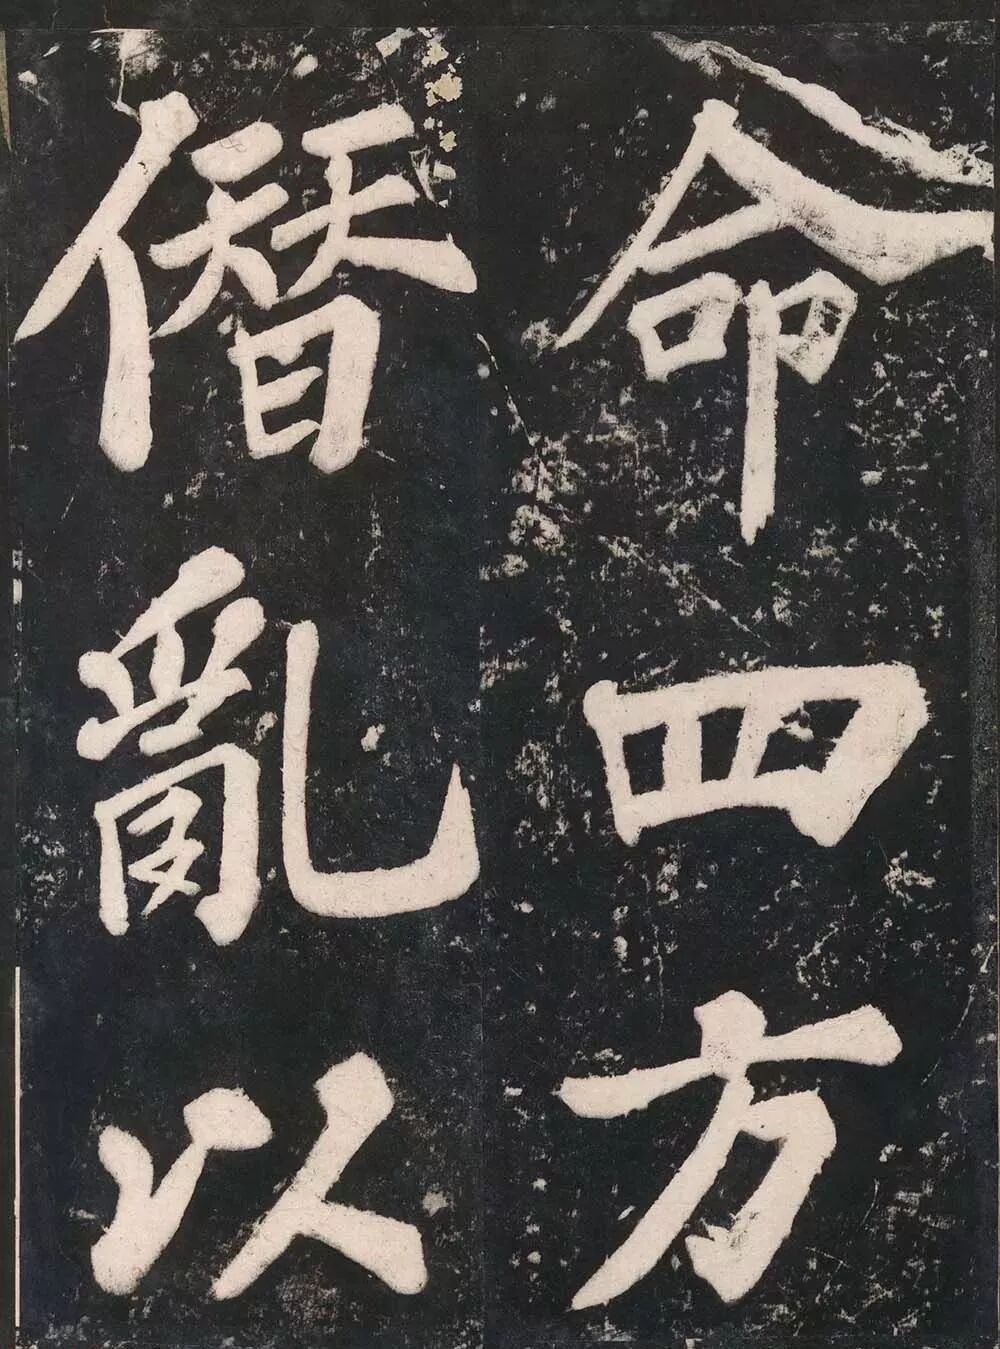 命四方
僭亂以